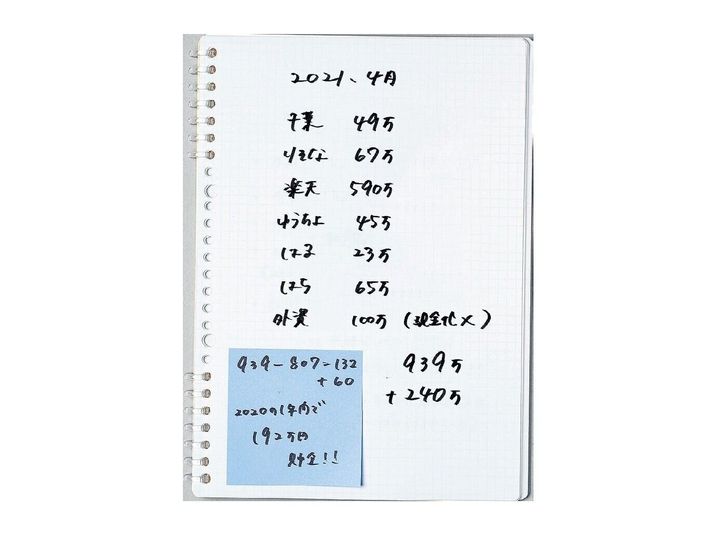 2021、4月
千葉 49万
りそな 67万
楽天 590万
ゆうちょ 45万
はる 23万
はら 65万
外資 100万 (現金化×)
939万
+240万
939-807=132
+60
2020の1年内で
192万円
貯金!!